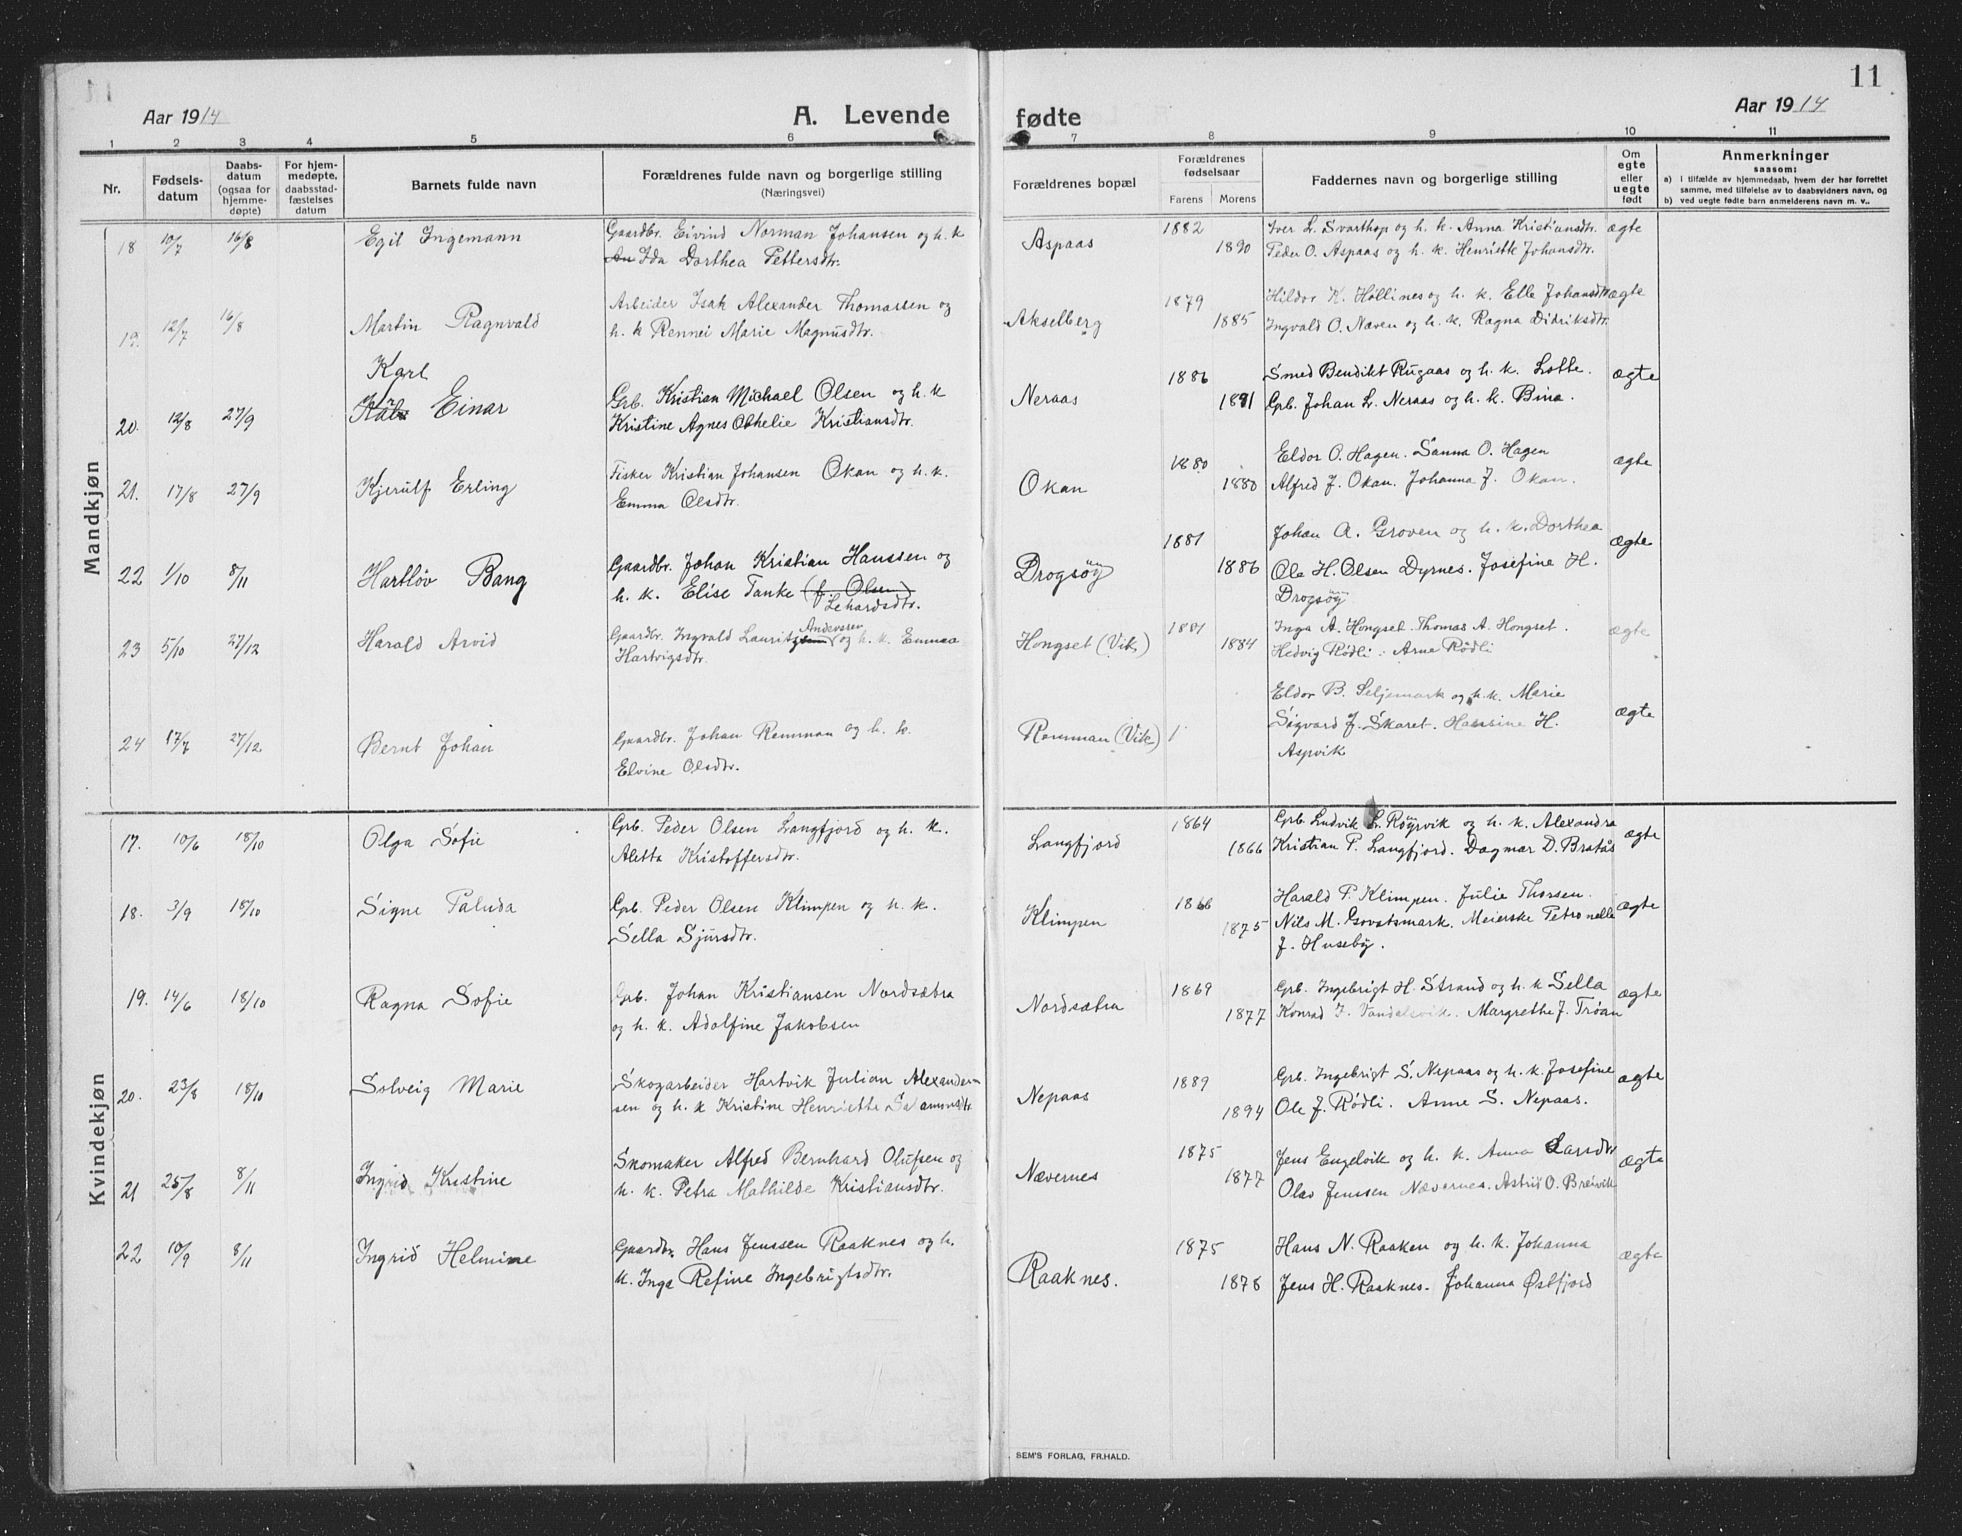 11
Aar 1914
A. Levende fødte
Aar 1914
1 2 3 4 5 6 7 8 9 10 11
Nr.
Fødsels-
datum
Daabs-
datum
(ogsaa for
hjemme-
døpte)
For hjem-
medøpte,
daabsstad-
fæstelses
datum
Barnets fulde navn
Forældrenes fulde navn og borgerlige stilling
(Næringsvei)
Forældrenes bopæl
Forældrenes
fødselsaar
Farens Morens
Faddernes navn og borgerlige stilling
Om
egte
eller
uegte
født
Anmerkninger
saasom:
a) i tilfælde av hjemmedaab, hvem der har forrettet
samme, med tilføielse av to daabsvidners navn, og
b) ved uegte fødte barn anmelderens navn m. v..
Mandkjøn
18 10/7 16/8 Egil Ingemann
Gaardbr. Eivind Norman Johansen og h. k
An Ida Dorthea Pettersdtr.
Aspaas 1882 1890
Iver L. Svarthop og h. k. Anna Kristiansdtr.
Peder O. Aspaas og h. k. Henriette Johansdtr.
ægte
19. 12/7 16/8 Martin Ragnvald
Arbeider Isak Alexander Thomassen og
h. k Rennei Marie Magnusdtr.
Akselberg 1879 1885
Hildor K. Hollines og h. k. Elle Johansdtr
Ingvald O. Næven og h. k. Ragna Didriksdtr.
ægte
20. 12/8 27/9 Karl
Einar
Grb. Kristian Michael Olsen og h. k
Kristine Agnes Othelie Kristiansdtr.
Neraas 1886 1891
Smed Bendikt Rugaas og h. k. Lotte.
Grb. Johan L. Neraas og h. k. Bina.
ægte
21. 17/8 27/9 Kjerulf Erling
Fisker Kristian Johansen Okan og h. k.
Emma Olsdtr.
Okan 1880 1880
Eldor O. Hagen. Sanna O. Hagen
Alfred J. Okan. Johanna J. Okan.
ægte
22 1/10 8/11 Hartløv Bang
Gaardbr. Johan Kristian Hanssen og
h. k. Elise Tanke (f. Olsen)
Lehardsdtr.
Drogsøy 1881 1886
Johan A. Groven og h. k. Dorthea
Ole H. Olsen Dyrnes. Josefine H.
Drogsøy
ægte
23 5/10 27/12 Harald Arvid
Andersen
Gaardbr. Ingvald Lauritzsen og h. k. Emma
Hartvigsdtr.
Hongset (Vik) 1881 1884
Inga A. Hongset. Thomas A. Hongset.
Hedvig Rødli. Arne Rødli
ægte
24 17/7 27/12 Bernt Johan
Gaardbr. Johan Remman og h. k.
Elvine Olsdtr.
Remman (Vik) 1
Eldor B. Seljemark og h. k. Marie
Sigvard J. Skaret. Hansine H.
Aspvik
ægte
Kvindekjøn
17. 10/6 18/10 Olga Sofie
Grb. Peder Olsen Langfjord og h. k.
Aletta Kristoffersdtr.
Langfjord 1864 1866
Grb. Ludvik L. Røyrvik og h. k. Alexandra
Kristian P. Langfjord. Dagmar D. Bratås
ægte
18. 3/9 18/10 Signe Paluda
Grb. Peder Olsen Klimpen og h. k.
Sella Sjursdtr.
Klimpen 1866 1875
Harald P. Klimpen. Julie Thorsen.
Nils M. Govatsmark. Meierske Petronelle
J. Huseby.
ægte
19. 14/6 18/10 Ragna Sofie
Grb. Johan Kristiansen Nordsætra
og h. k. Adolfine Jakobsen
Nordsætra 1869 1877
Grb. Ingebrigt H. Strand og h. k Sella
Konrad Margrethe J. Trøan
ægte
20. 23/8 18/10 Solveig Marie
Skogarbeider Hartvik Julian Alexander-
sen og h. k Kristine Henriette
Nepaas 1889 1894
Grb. Ingebrigt S. Nepaas og h. k. Josefine
Ole J. Rødli. Anne S. Nepaas.
ægte
21 25/8 8/11 Ingrid Kristine
Skomaker Alfred Bernhard Olufsen og
h. k. Petra Mathilde Kristiansdtr.
Nævernes 1875 1877
Jens Engelvik og h. k. Anna Larsdtr
Olav Jenssen Nævernes. Astrid O. Breivik
ægte
22 10/9 8/11 Ingrid Helmine
Gaardbr. Hans Jenssen Raaknes og h.
k. Inga Refine Ingebrigtsdtr.
Raaknes. 1875 1878
Hans N. Raaken og h. k. Johanna
Jens H. Raaknes. Johanna Østfjord
ægte
SEM'S FORLAG, FR.HALD.